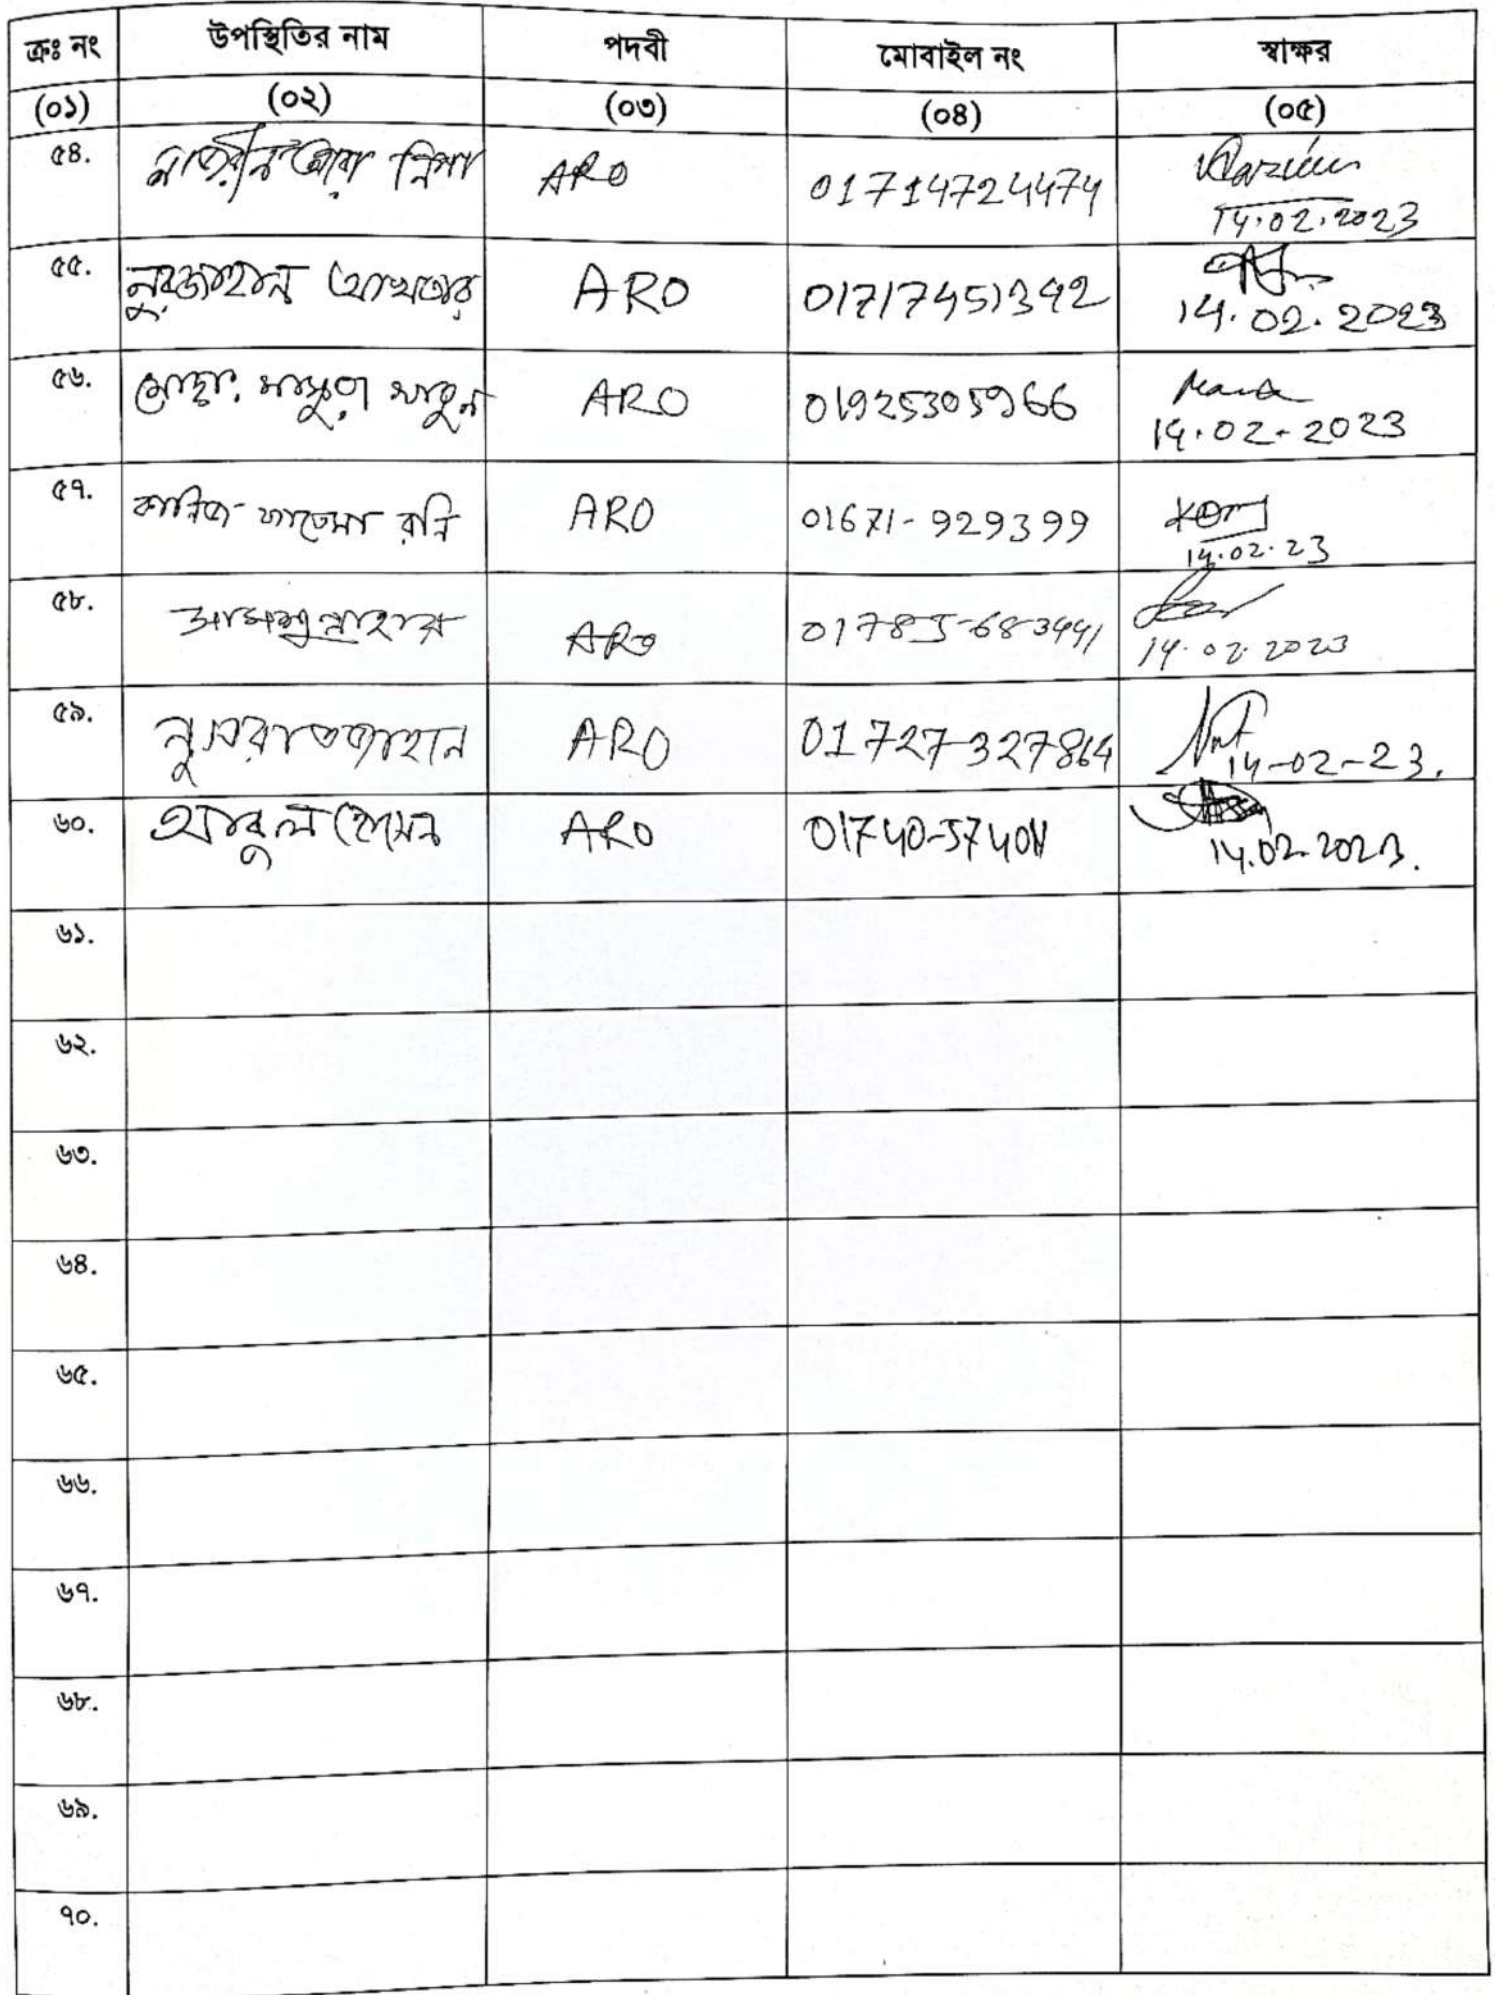 ক্রঃ নং উপস্থিতির নাম পদবী মোবাইল নং স্বাক্ষর
(০১) (০২) (০৩) (০৪) (০৫)
৫৪. নাজরীন আরা নিপা ARO 01714724474
14.02.2023
৫৫. নুরজাহান আখতার ARO 01717451342
14.02.2023
৫৬. মোছা. মাসুদা খাতুন ARO 01925305966
14.02-2023
৫৭. কানিজ ফাতেমা রনি ARO 01671-929399
14.02.23
৫৮. ARO 01785-683441
14.02.2023
৫৯. নুসরাত জাহান ARO 01727327864
14-02-23.
৬০. আবুল হোসেন ARO 01740-574011
14.02.2023.
৬১.
৬২.
৬৩.
৬৪.
৬৫.
৬৬.
৬৭.
৬৮.
৬৯.
৭০.